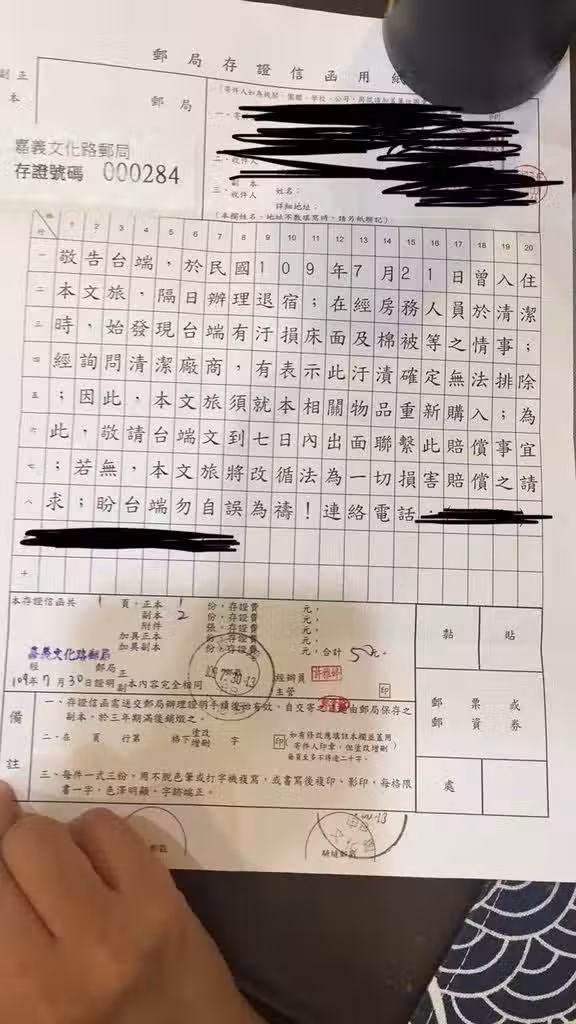 郵局存證信函用紙
副 正
本
郵局
嘉義文化路郵局
存證號碼 000284
一、寄件人
二、收件人
三、副本收件人 姓名：
詳細地址：
（本欄姓名、地址不敷填寫時，請另紙聯記）
格 行 1 2 3 4 5 6 7 8 9 10 11 12 13 14 15 16 17 18 19 20
一 敬告台端，於民國109年7月21日曾入住
二 本文旅，隔日辦理退宿；在經房務人員於清潔
三 時，始發現台端有汙損床面及棉被等之情事；
四 經詢問清潔廠商，有表示此汙漬確定無法排除
五 ；因此，本文旅須就本相關物品重新購入；為
六 此，敬請台端文到七日內出面聯繫此賠償事宜
七 ；若無，本文旅將改循法為一切損害賠償之請
八 求；盼台端勿自誤為禱！連絡電話：
十
本存證信函共 1 頁，正本 份，存證費 元，
副本 2 份，存證費 元，
附件 張，存證費 元，
加具正本 份，存證費 元，
加具副本 份，存證費 元，合計 50元。
嘉義文化路郵局
經 郵局
109年7月30日證明 正副 本內容完全相同
經辦員
主管 印
黏 貼
郵 票 或
郵 資 券
處
備註
一、存證信函需送交郵局辦理證明手續後始有效，自交寄之日起由郵局保存之
副本，於三年期滿後銷燬之。
二、在 頁 行第 格下 塗改增刪 字 印（如有修改應填註本欄並蓋用寄件人印章，但塗改增刪每頁至多不得逾二十字。）
三、每件一式三份，用不脫色筆或打字機複寫，或書寫後複印、影印，每格限
書一字，色澤明顯、字跡端正。
騎縫郵戳